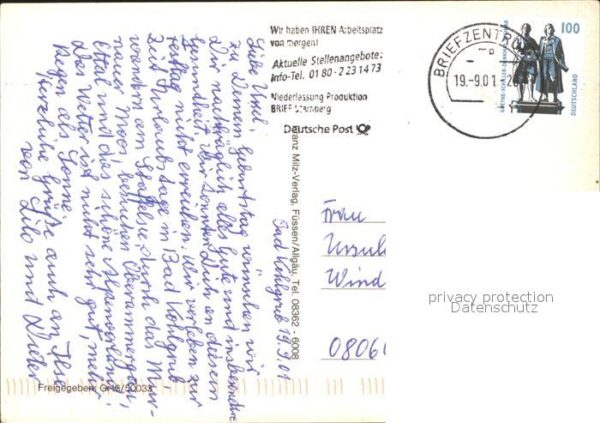 Wir haben IHREN Arbeitsplatz
von morgen!
Aktuelle Stellenangebote:
Info-Tel. 01 80 - 2 23 14 73
Niederlassung Produktion
BRIEF Starnberg
Deutsche Post
BRIEFZENTRUM
19.-9.01
100
DEUTSCHLAND
GOETHE-SCHILLER-DENKMAL
Bad Kohlgrub 19.9.01
Liebe Uschi,
zu Deinem Geburtstag wünschen wir
Dir nachträglich alles Gute und insbesondere
Gesundheit. Wir konnten Dich an diesem
Festtag nicht erreichen. Wir verleben zur
Zeit Urlaubstage in Bad Kohlgrub
wandern am Staffelsee, durch das Mur-
nauer Moos, besuchen Oberammergau,
Ettal und das schöne Alpenvorland.
Das Wetter ist nicht sehr gut, mehr
Regen als Sonne.
Herzliche Grüße auch an Ilse
von Lilo und Dieter
Franz Milz-Verlag, Füssen/Allgäu, Tel. 08362 - 6008
Frau
Ursul
Wind
0806
privacy protection
Datenschutz
Freigegeben: G 16/30033